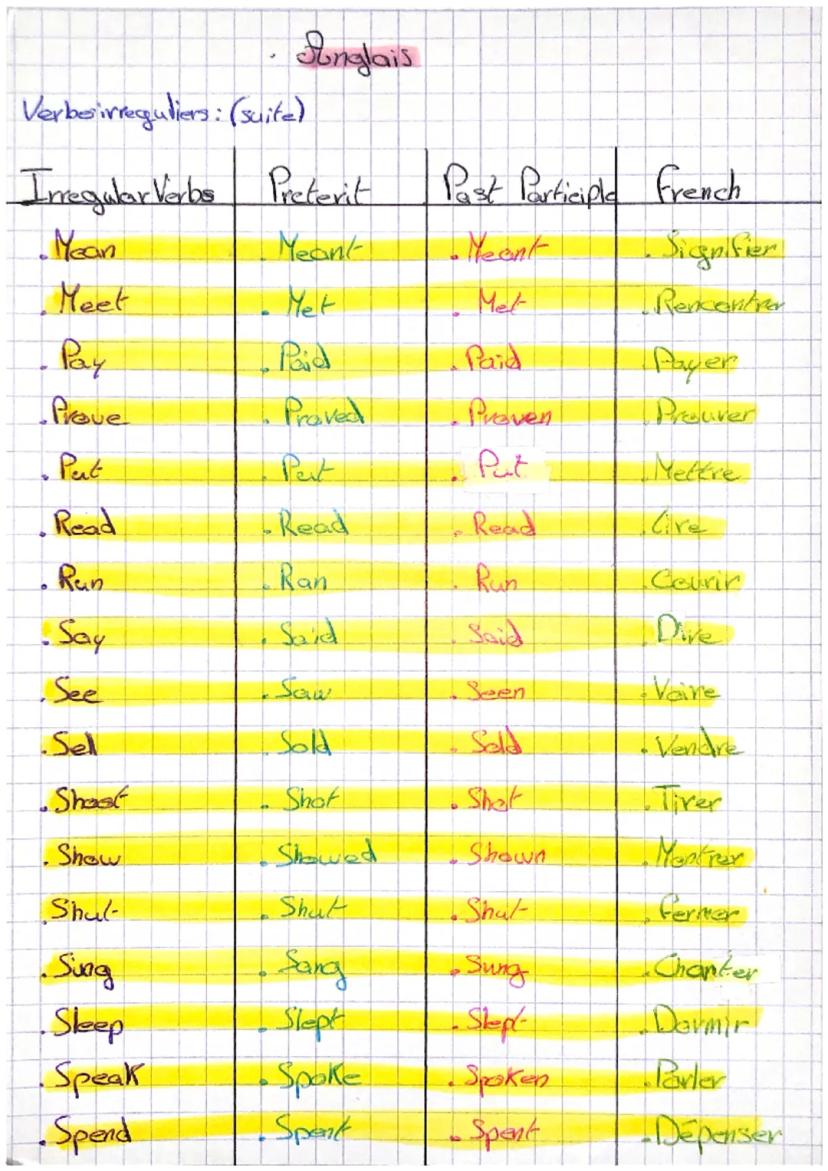 Anglais
Verbes irreguliers : (suite)
Irregular Verbs Preterit Past Participle French
. Mean . Meant . Meant . Signifier
. Meet . Met . Met . Rencontrer
. Pay . Paid . Paid . Payer
. Prove . Proved . Proven . Prouver
. Put . Put . Put . Mettre
. Read . Read . Read . Lire
. Run . Ran . Run . Courir
. Say . Said . Said . Dire
. See . Saw . Seen . Voire
. Sel . Sold . Sold . Vendre
. Shoot . Shot . Shot . Tirer
. Show . Showed . Shown . Montrer
. Shut . Shut . Shut . Fermer
. Sing . Sang . Sung . Chanter
. Sleep . Slept . Slept . Dormir
. Speak . Spoke . Spoken . Parler
. Spend . Spent . Spent . Dépenser